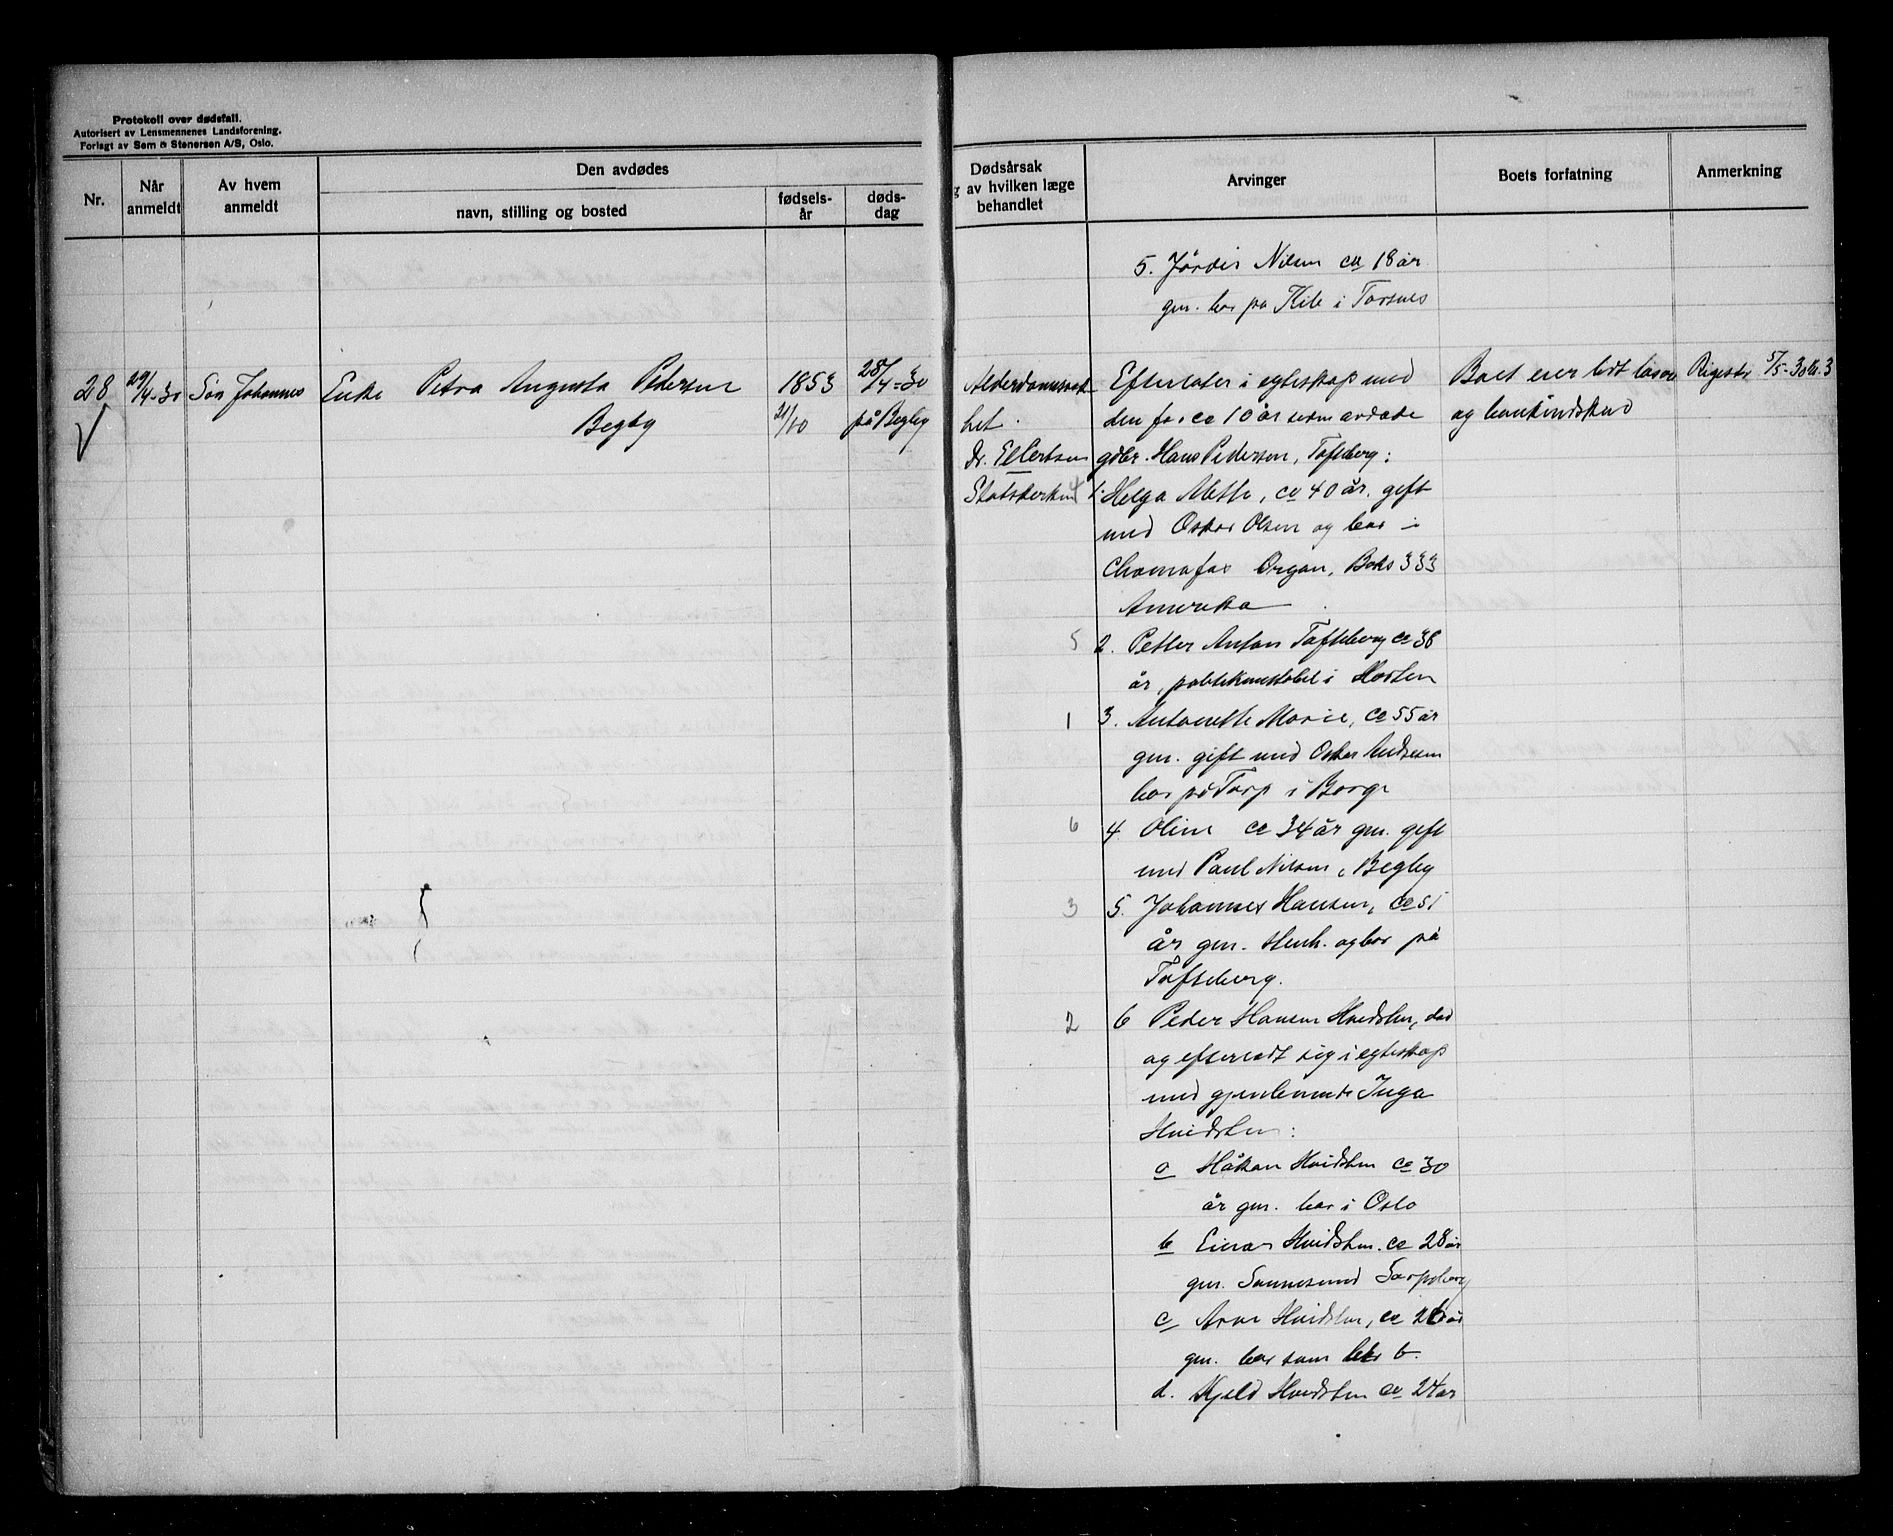 Protokoll over dødsfall.
Autorisert av Lensmennenes Landsforening.
Forlagt av Sem & Stenersen A/S, Oslo.
Nr.
Når anmeldt
Av hvem anmeldt
Den avdødes
navn, stilling og bosted
fødsels-år
døds-dag
Dødsårsak
g av hvilken læge
behandlet
Arvinger
Boets forfatning
Anmerkning
5. Jördis Nilsen ca 18 år
gm. bor på Kile i Torsnes
28
29/4-30
Søn Johannes
Enke Petra Augusta Pedersen
Begby
1853
21/10
28/4-30
på Begby
Alderdomssvak
het.
Dr. Ellertsen
Efterlater i egteskap med
den for ca 10 år siden avdøde
gdbr. Hans Pedersen, Tofteberg:
4 1. Helga Mette, ca 40 år. gift
med Oskar Olsen og bor i
Organ, Boks 333
Amerika
5 2. Petter Anton Tofteberg ca 38
år, politikonstabel i Horten
1 3. Antonette Marie, ca 55 år
gm. gift med Oskar Andresen
bor på Torp i Borge
6 4. Oline ca 34 år gm. gift
med Paul Nilsen, Begby
3 5. Johannes Hansen, ca 51
år gm. og bor på
Tofteberg.
2 6 Peder Hansen Hvidsten, død
og efterladt sig i egteskap
med gjenlevende Inga
Hvidsten:
a Håkon Hvidsten ca 30
år gm. bor i Oslo
b Einar Hvidsten. ca 28 år
gm. Sannesund Sarpsborg
c Arne Hvidsten, ca 26 år
gm. bor som b.
d. Kjeld Hvidsten ca 24 år
Boet eier lidt løsøre
og bankindskud
5/5-30 No. 3